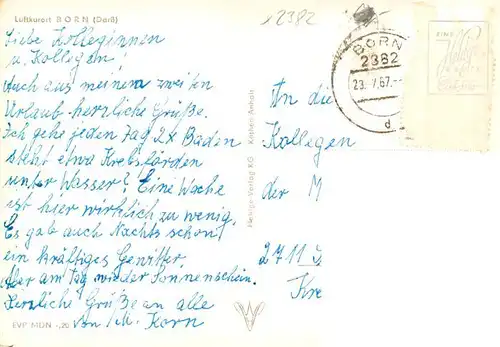 Luftkurort BORN (Darß)
Liebe Kolleginnen
u. Kollegen!
Auch aus meinem zweiten
Urlaub herzliche Grüße.
Ich gehe jeden Tag 2x Baden
steht etwa Krebsförden
unter Wasser? Eine Woche
ist hier wirklich zu wenig.
Es gab auch Nachts schon
ein kräftiges Gewitter,
Aber am Tag wieder Sonnenschein.
Herzliche Grüße an alle
von M. Korn
EVP MDN -,20
x 2382
BORN
2382
23. 7. 67.--
d
An die
Kollegen
der M
2711
Kre